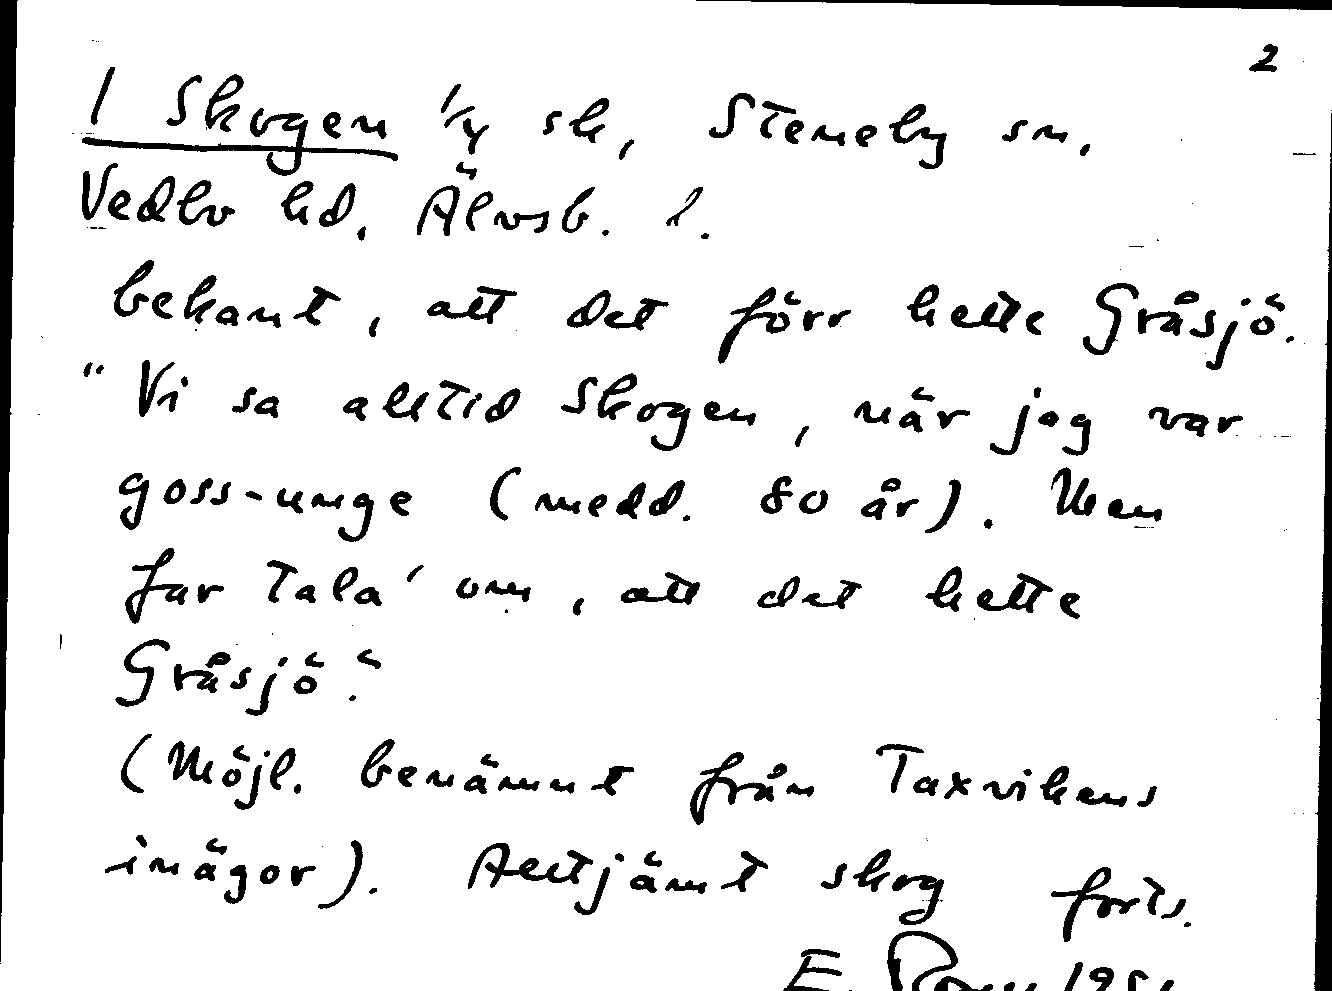 2
1 Skogen 1/4 sk, Steneby sn,
Vedbo hd, Älvsb. l.
bekant, att det förr hette Gråsjö.
"Vi sa alltid Skogen, när jag var
goss-unge (medd. 80 år). Men
far tala' om, att det hette
Gråsjö."
(Möjl. benämnt från Taxvikens
inägor). Alltjämt skog forts.
E.